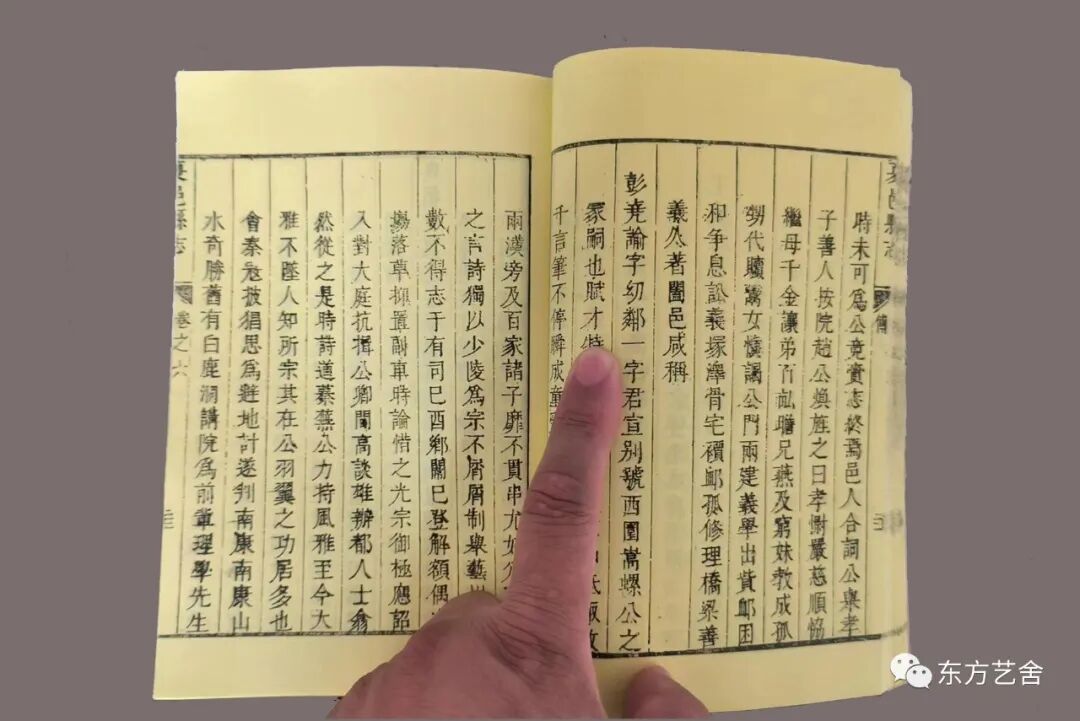 時未可為公竟賫志終焉邑人合詞公舉孝
子善人按院趙公煥旌之曰孝慰嚴慈順協
繼母千金讓弟百畝贍兄燕及窮妹教成孤
甥代贖鬻女慎謁公門兩建義學出貲邮困
和爭息訟義塚澤骨宅櫬邮孤修理橋梁善
義久著闔邑咸稱
彭堯諭字幼鄰一字君宣别號西園嵩螺公之
冢嗣也賦才
千言筆不停綷成童
兩漢旁及百家諸子靡不貫串尤
之言詩獨以少陵為宗不屑屑制舉藝
數不得志于有司巳酉鄉闈巳登解額偶
塲落草擯置副車時論惜之光宗御極應詔
入對大庭抗揖公卿間高談雄辨都人士翕
然從之是時詩道蓁蕪公力持風雅至今大
雅不墜人知所宗其在公羽翼之功居多也
會秦寇披猖思為避地計遂判南康南康山
水奇勝舊有白鹿洞講院為前軰理學先生
夏邑縣志
卷之六
夏邑縣志
东方艺舍